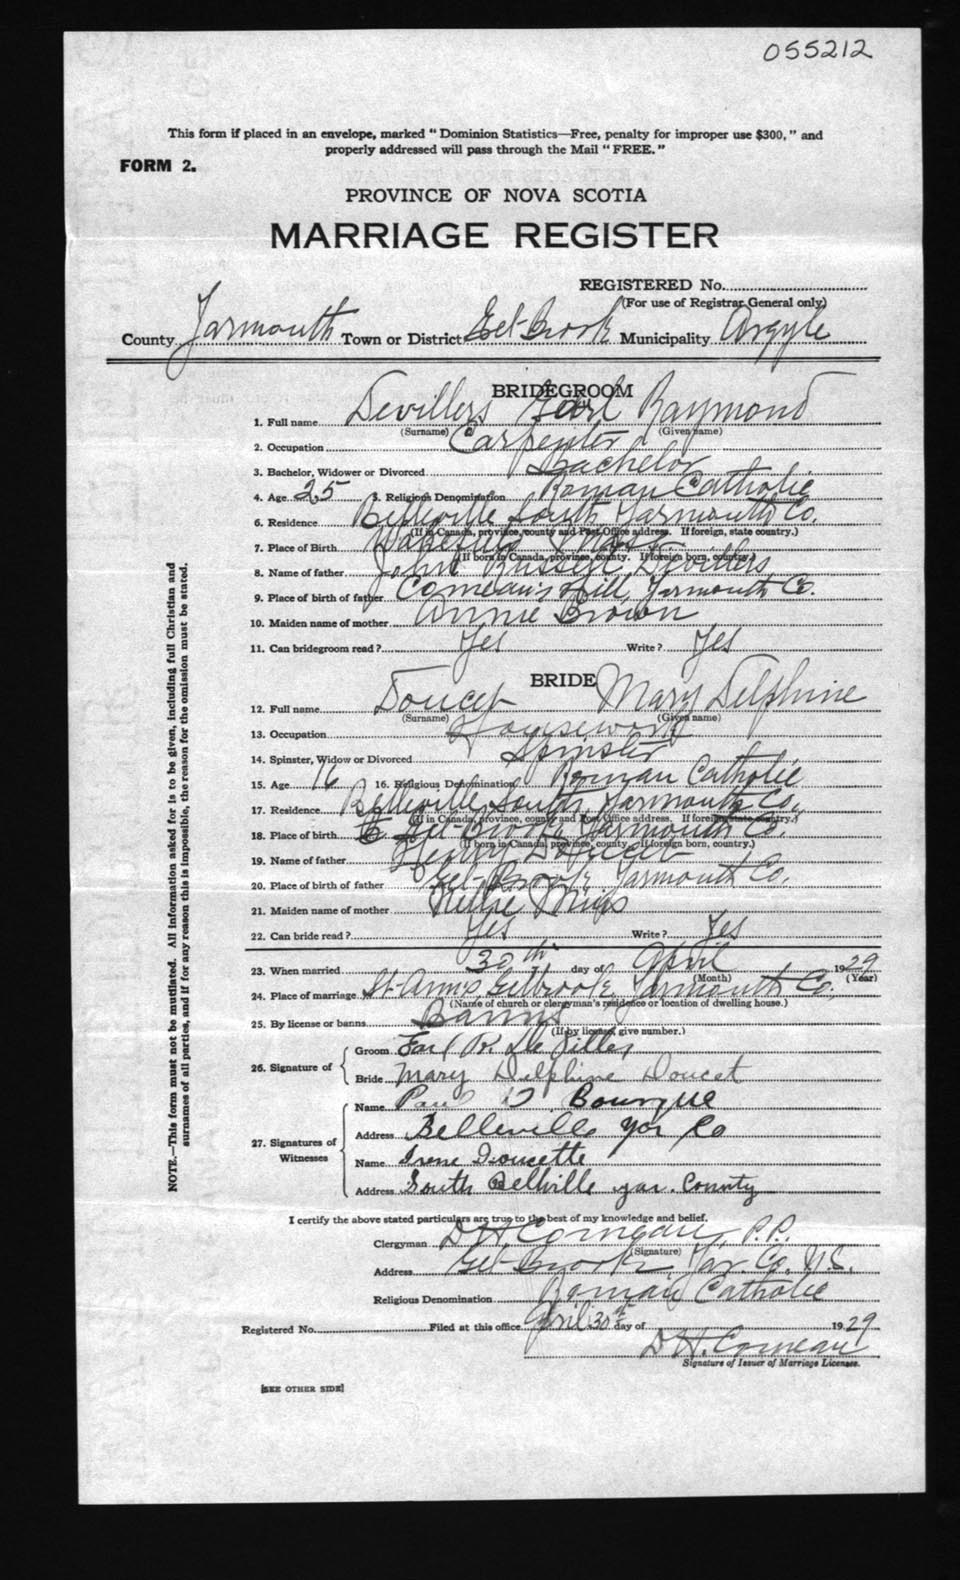 055212
This form if placed in an envelope, marked "Dominion Statistics—Free, penalty for improper use $300," and
properly addressed will pass through the Mail "FREE."
FORM 2.
PROVINCE OF NOVA SCOTIA
MARRIAGE REGISTER
REGISTERED No.
(For use of Registrar General only)
County Yarmouth Town or District Eel-Brook Municipality Argyle
BRIDEGROOM
1. Full name Devillers Earl Raymond
(Surname) (Given name)
2. Occupation Carpenter
3. Bachelor, Widower or Divorced Bachelor
4. Age 25 5. Religious Denomination Roman Catholic
6. Residence Belleville South Yarmouth Co.
(If in Canada, province, county and Post Office address. If foreign, state country.)
7. Place of Birth Wakefield Mass
(If born in Canada, province, county. If foreign born, country.)
8. Name of father John Russell Devillers
9. Place of birth of father Comeau's Hill, Yarmouth Co.
10. Maiden name of mother Annie Brown
11. Can bridegroom read? Yes Write? Yes
BRIDE
12. Full name Doucet Mary Delphine
(Surname) (Given name)
13. Occupation Housework
14. Spinster, Widow or Divorced Spinster
15. Age 16 16. Religious Denomination Roman Catholic
17. Residence Belleville South, Yarmouth Co.
(If in Canada, province, county and Post Office address. If foreign state country.)
18. Place of birth Eel-Brook, Yarmouth Co.
(If born in Canada, province, county. If foreign born, country.)
19. Name of father Henry Doucet
20. Place of birth of father Eel-Brook, Yarmouth Co.
21. Maiden name of mother Nellie
22. Can bride read? Yes Write? Yes
23. When married 30th day of April 1929
(Month) (Year)
24. Place of marriage St-Ann's, Eelbrook, Yarmouth Co.
(Name of church or clergyman's residence or location of dwelling house.)
25. By license or banns Banns
(If by license, give number.)
26. Signature of
Groom Earl R. De Viller
Bride Mary Delphine Doucet
27. Signatures of Witnesses
Name Paul D. Bourque
Address Belleville Yar Co
Name Irene Doucette
Address South Bellville yar. County
I certify the above stated particulars are true to the best of my knowledge and belief.
Clergyman D H Comeau, P.P.
(Signature)
Address Eel-Brook, Yar. Co. N.S.
Religious Denomination Roman Catholic
Registered No. Filed at this office April 30th day of 1929
D H. Comeau
Signature of Issuer of Marriage Licenses.
[SEE OTHER SIDE]
NOTE.—This form must not be mutilated. All information asked for is to be given, including full Christian and
surnames of all parties, and if for any reason this is impossible, the reason for the omission must be stated.